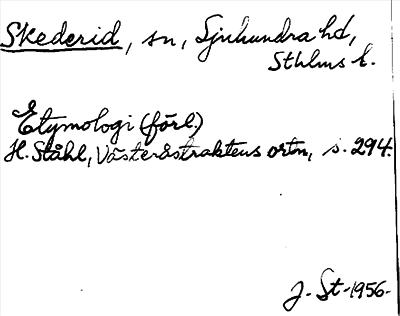 Skederid, sn, Sjuhundra hd,
Sthlms l.
Etymologi (förl.)
H. Ståhl, Västeråstraktens ortn, s. 294.
J. St. 1956.